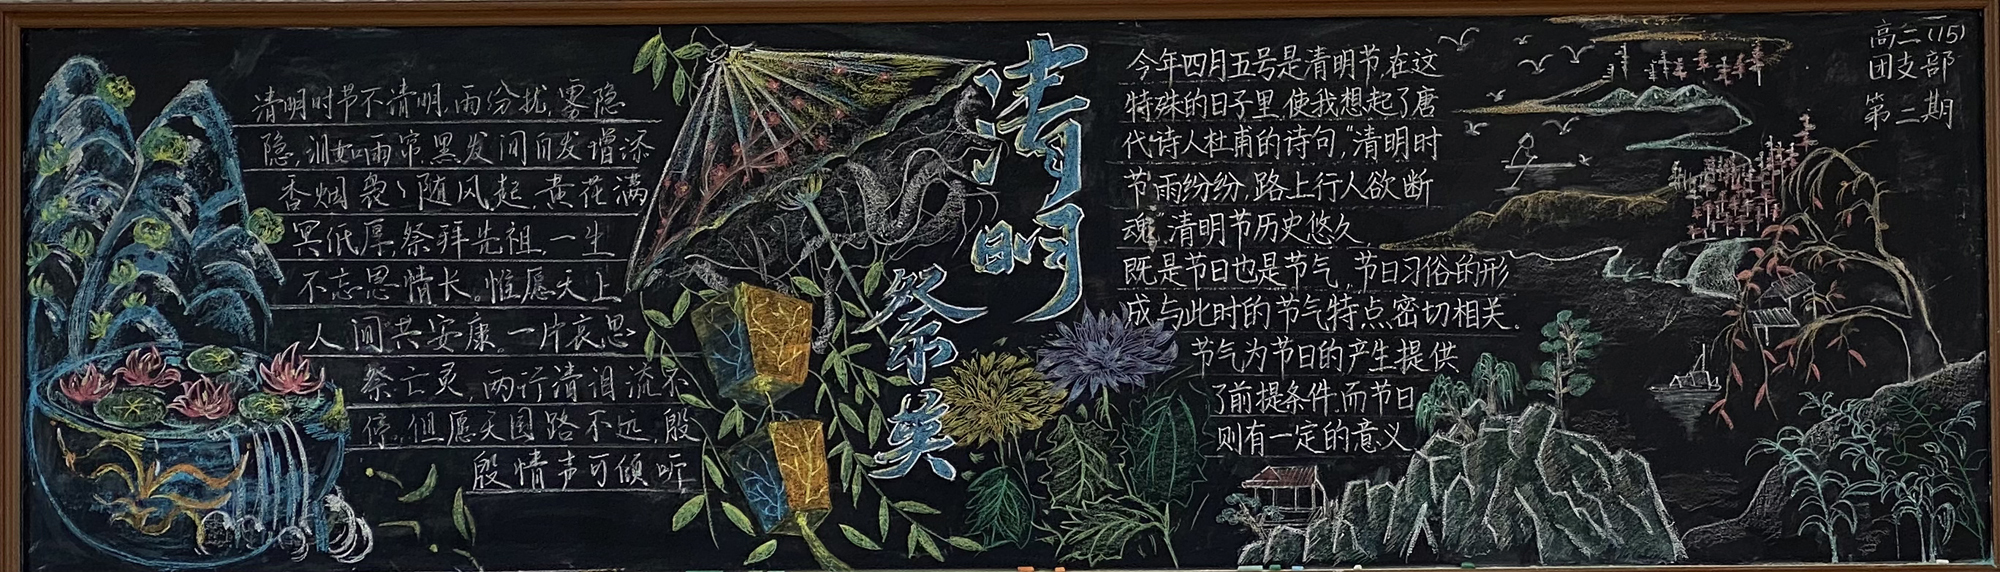 清明时节不清明,雨纷扰,雾隐
隐,训如雨帘.黑发间白发增添
香烟袅〻随风起,黄花满
冥低厚,祭拜先祖,一生
不忘恩情长。惟愿天上
人间共安康。一片哀思
祭亡灵,两行清泪流不
停,但愿天国路不远,殷
殷情声可倾听
清明
祭英
今年四月五号是清明节,在这
特殊的日子里,使我想起了唐
代诗人杜甫的诗句,“清明时
节雨纷纷,路上行人欲断
魂”,清明节历史悠久
既是节日也是节气,节日习俗的形
成与此时的节气特点密切相关.
节气为节日的产生提供
了前提条件,而节日
则有一定的意义
高二(15)
团支部
第二期